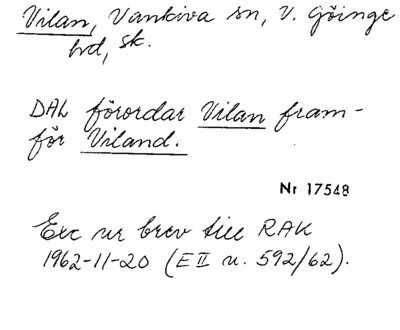 Vilan, Vankiva sn, V. Göinge
hd, sk.
DAL förordar Vilan fram-
för Viland.
Nr 17548
Exc ur brev till RAK
1962-11-20 (E II u. 592/62).